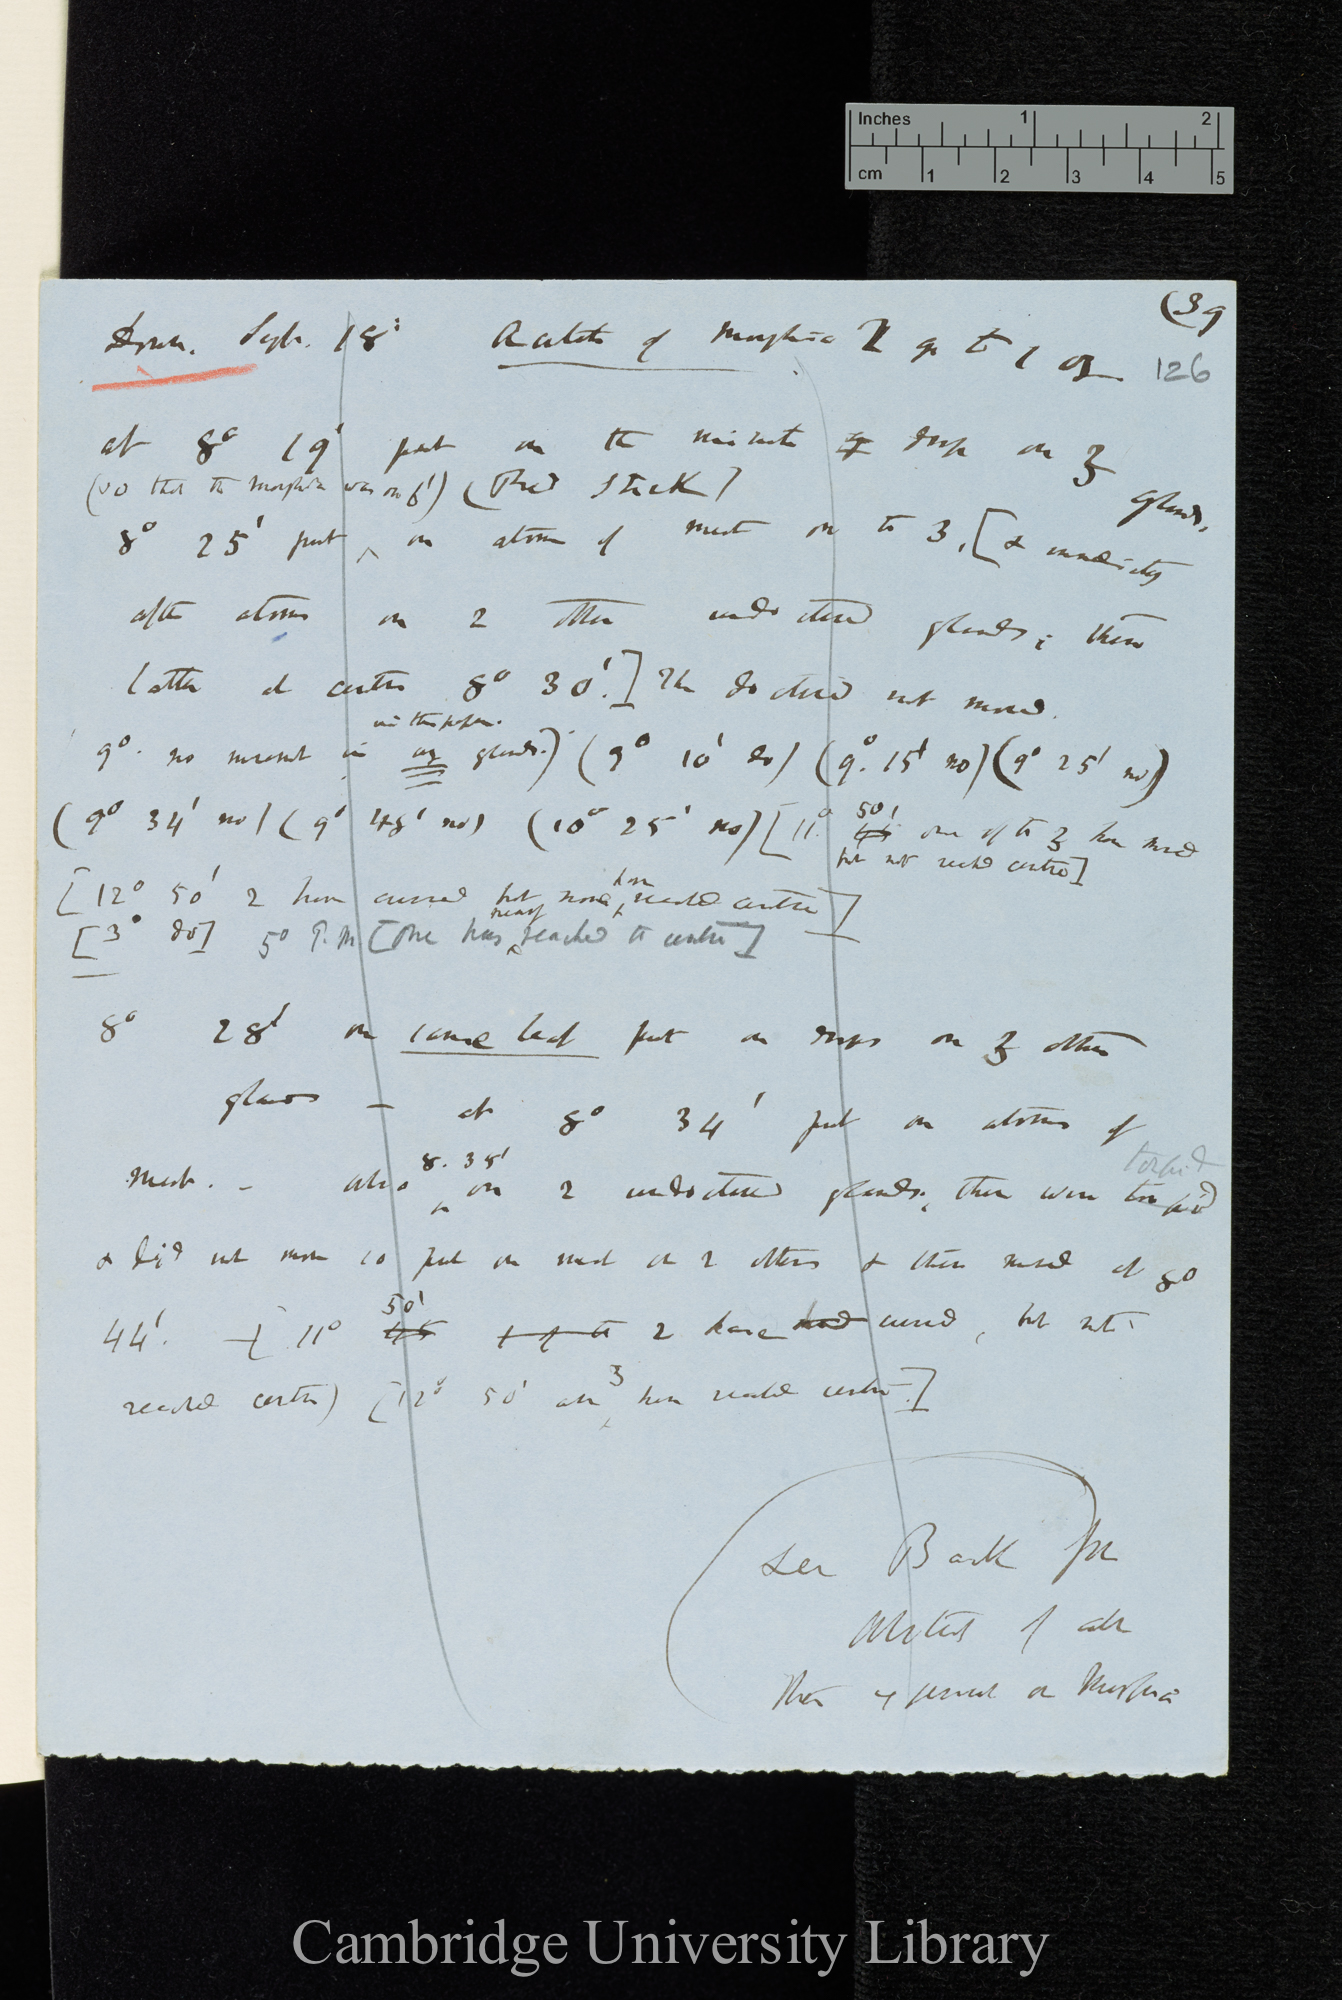 Inches 1 2
cm 1 2 3 4 5
(39
Dros. Sept. 18: Acetate of Morphia 2 gr to 1 oz
126
at 8° 19' put on the minute drops on 3 glands,
(so that the morphia was on 6') (Red Stick)
8° 25' put on atoms of meat on to 3, [& immediately
after atoms on 2 other undoctored glands; these
latter at centre 8° 30'.] The doctored not moved.
9°. no movement in any glands.) (9° 10' do) (9°. 15' no) (9° 25' no)
(9° 34' no) (9° 48' no) (10° 25' no) [11° 50' one of the 3 have moved
but not reached centre]
[12° 50' 2 have curved but none have reached centre]
[3° do] 5° P.m [One has nearly reached the centre]
8° 28' on same leaf put on drops on 3 other
glands — at 8° 34' put on atoms of
meat. — also 8. 38' on 2 undoctored glands; these were torpid
torpid
& did not move so put on meat on 2 others & these moved at 8°
44'. [11° 50' 2 have had curved, but not
reached centre) [12° 50' all 3 have reached centre.]
See Back for
Abstract of all
these experiment on Morphia
Cambridge University Library